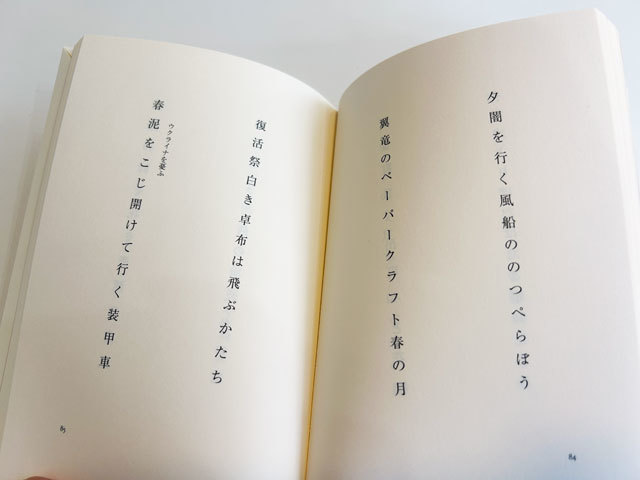 夕闇を行く風船ののつぺらぼう
翼竜のペーパークラフト春の月
84
復活祭白き卓布は飛ぶかたち
ウクライナを憂ふ
春泥をこじ開けて行く装甲車
85